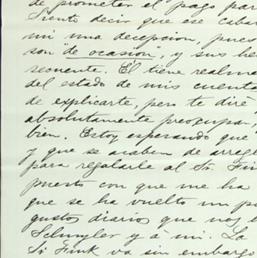 de prometer el pago par
siento decir que se caba
mi una decepcion, pues
son "de ocasion", y sus he
recuente. El tiene realme
del estado de mis cuenta
de explicarte, pero te diré
absolutamente preocupa
bien. Estoy esperando que
y que se acaben de arreg
para regalarle al Sr. Fin
puesto con que me ha
que se ha vuelto un p
gustos diarios que nos
Schuyler y á mi. La
Sr Fink va sin embargo